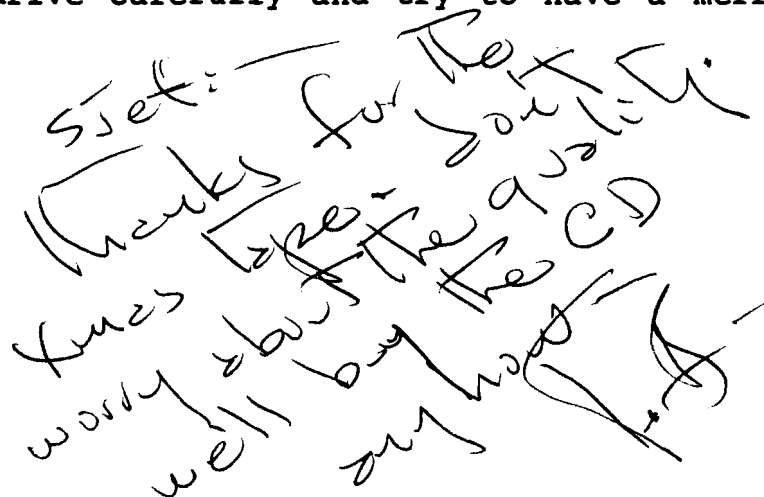 drive carefully and try to have a merr
Sjef:
Thanks for the
Xmas tape. Don't
worry about the quality.
we'll buy the CD
anyhow —